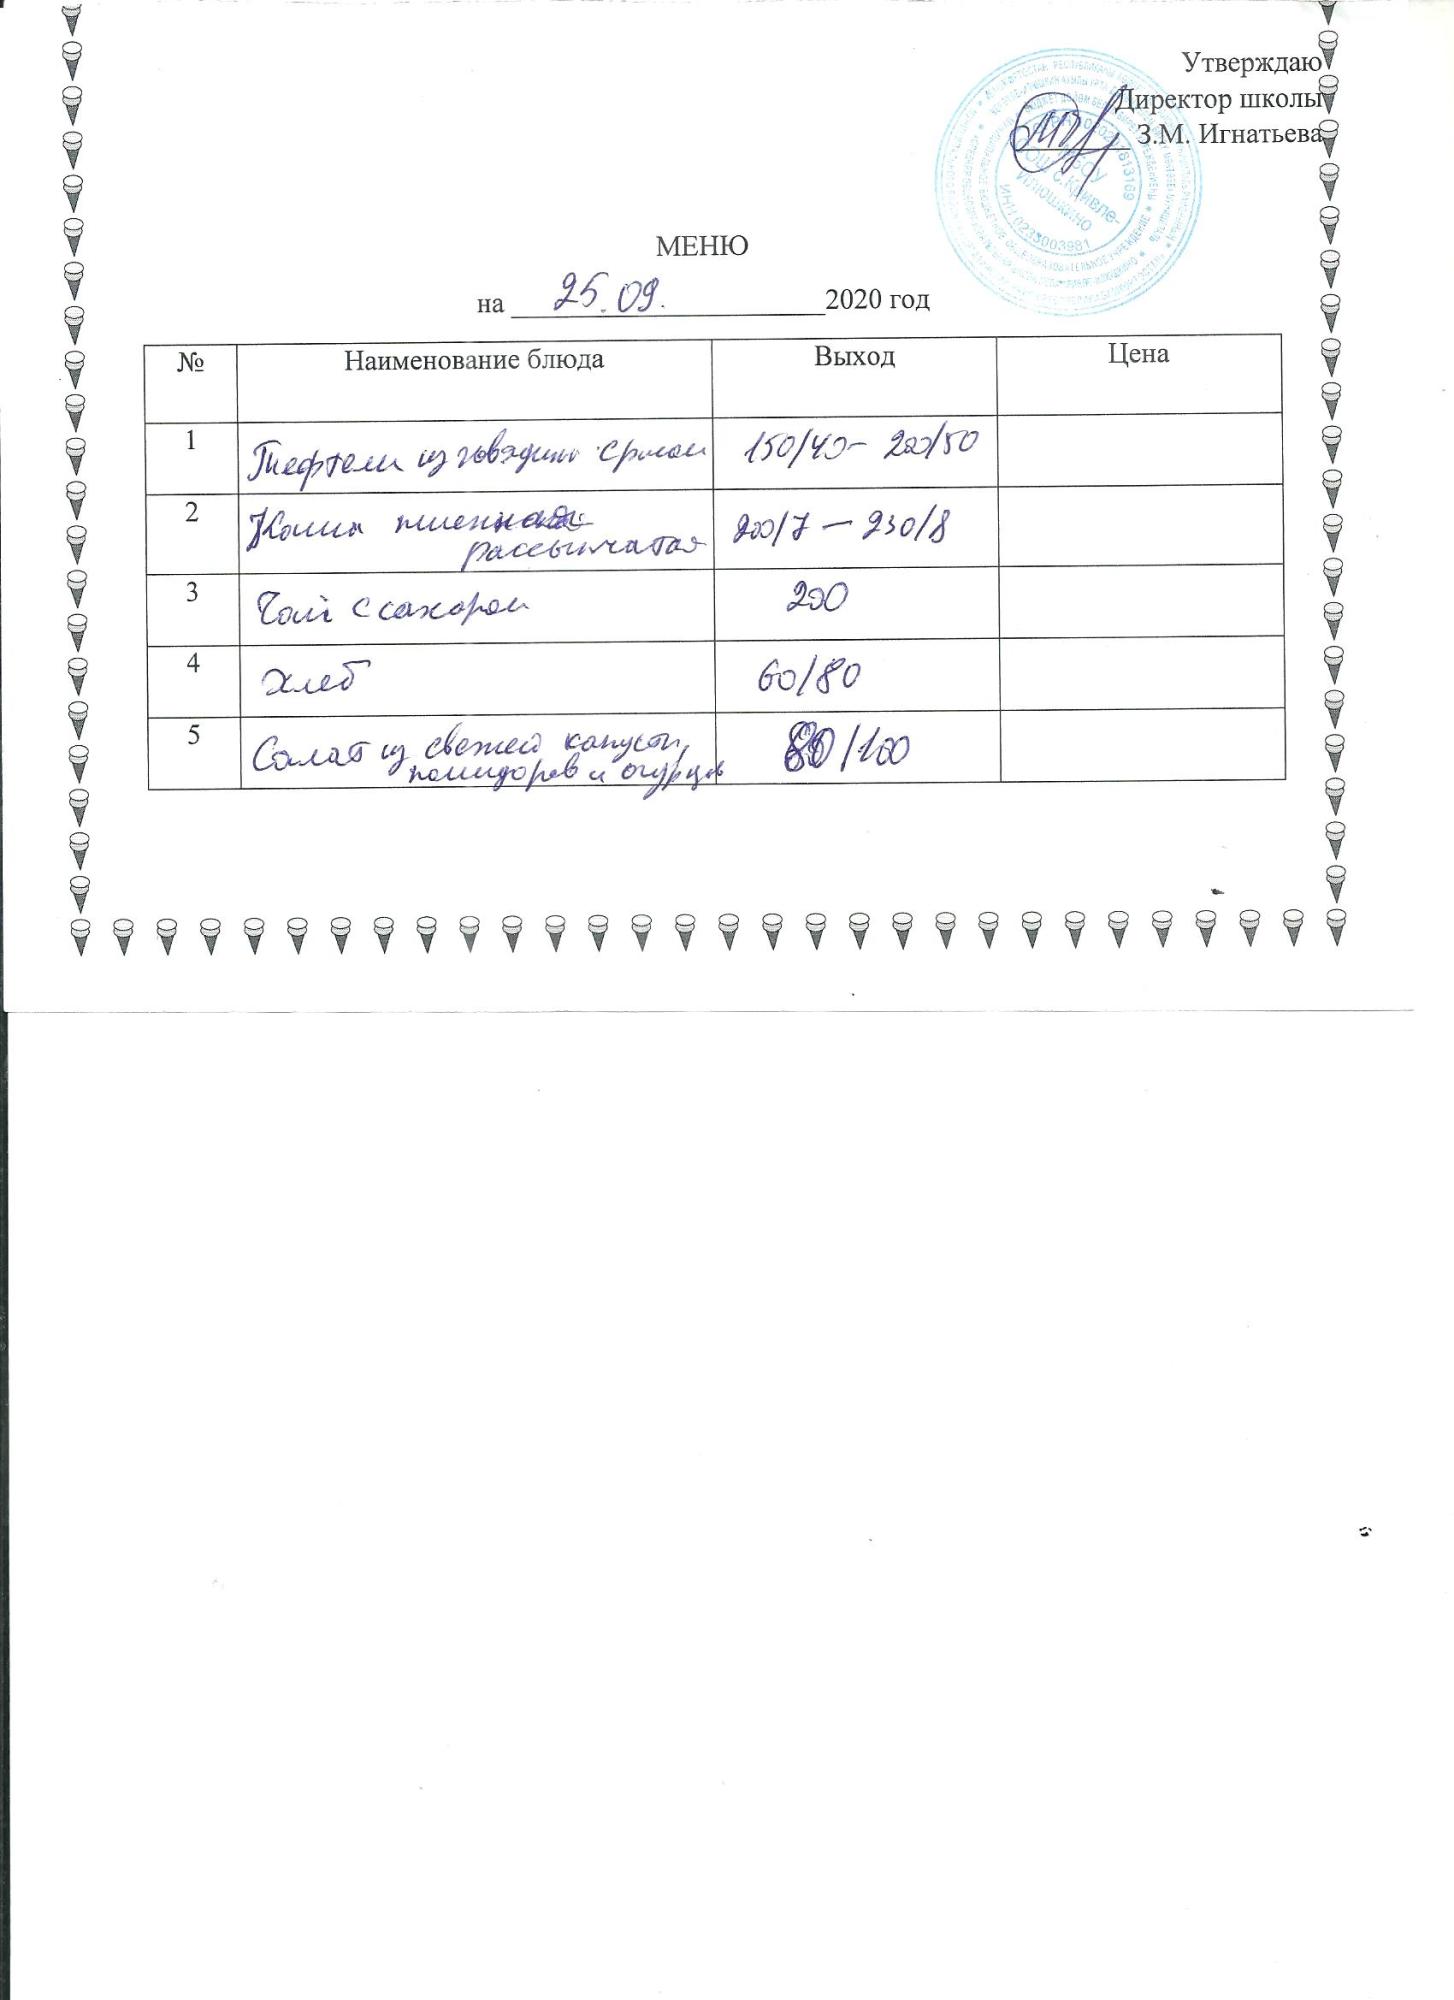 Утверждаю
Директор школы
З.М. Игнатьева
ИНН 0233003981
МЕНЮ
на 25.09. 2020 год
№ Наименование блюда Выход Цена
1 Тефтели из говядины с рисом 150/40 - 200/50
2 Каша пшенная 200/7 - 230/8
рассыпчатая
3 Чай с сахаром 200
4 Хлеб 60/80
5 Салат из свежей капусты, 80/100
помидоров и огурцов